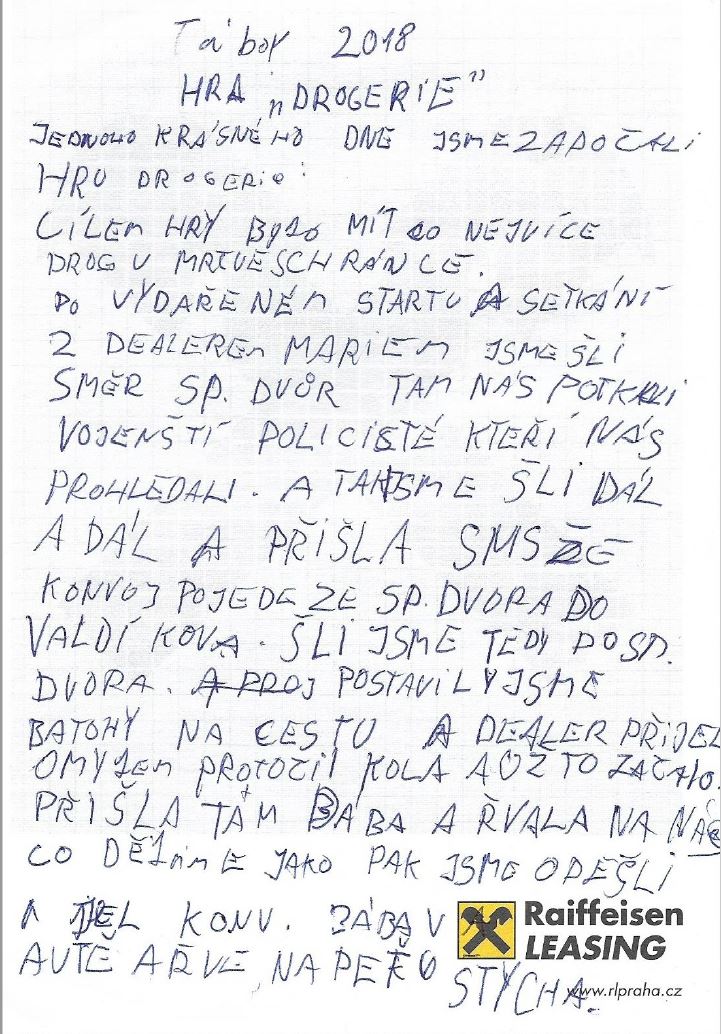 Tábor 2018
HRA „DROGERIE"
JEDNOHO KRÁSNÉHO DNE JSME ZAPOČALI
HRU DROGERIE:
CÍLEM HRY BYLO MÍT CO NEJVÍCE
DROG V MRTVÉ SCHRÁNCE.
PO VYDAŘENÉM STARTU A SETKÁNÍ
Z DEALEREM MARIEM JSME ŠLI
SMĚR SP. DVŮR TAM NÁS POTKALI
VOJENŠTÍ POLICISTÉ KTEŘÍ NÁS
PROHLEDALI. A TAK JSME ŠLI DÁL
A DÁL A PŘIŠLA SMS ŽE
KONVOJ POJEDE ZE SP. DVORA DO
VALDÍKOVA. ŠLI JSME TEDY DO SP.
DVORA. A PROJ POSTAVILY JSME
BATOHY NA CESTU A DEALER PŘIJEL
OMYLEM PROTOČIL KOLA A UŽ TO ZAČALO.
PŘIŠLA TAM BÁBA A ŘVALA NA NÁS
CO DĚLÁME JAKO PAK JSME ODEŠLI
A JEL KONV. BÁBA V
AUTĚ A ŘVE NA PEŘU
STÝCHA.
Raiffeisen
LEASING
www.rlpraha.cz